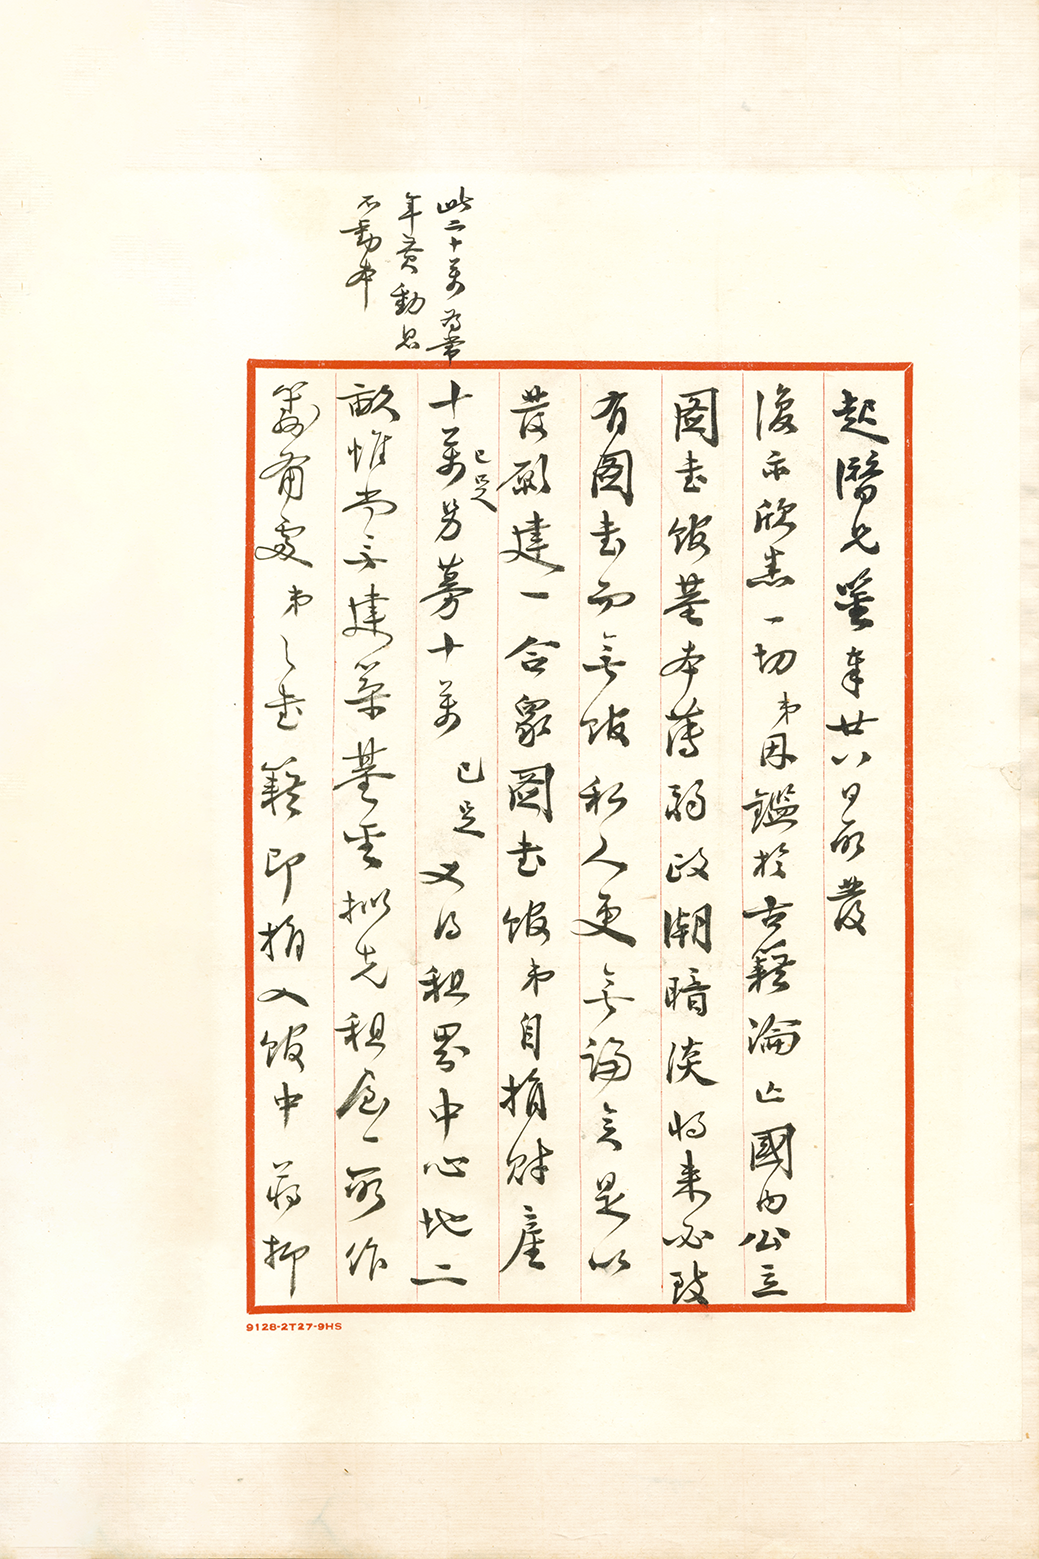 起潛兄鑒奉廿八日所發
復示欣悉一切弟因鑑於古籍淪亡國內公立
圖書館基本薄弱政潮暗淡將來必致
有圖書而無館私人更無論矣是以
發願建一合眾圖書館弟自捐財產
十萬已足另募十萬已足又得租界中心地二
畝惟尚無建築基金擬先租屋一所作
籌備處弟之書籍即捐入館中蔣抑
此二十萬為常
年費動息
不動本
9128-2T27-9HS